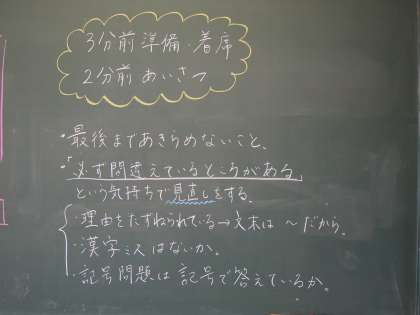 3分前 準備・着席
2分前 あいさつ
・最後まであきらめないこと、
・「必ず間違えているところがある」
という気持ちで見直しをする。
・理由をたずねられている→文末は〜だから。
・漢字ミスはないか。
・記号問題は記号で答えているか。